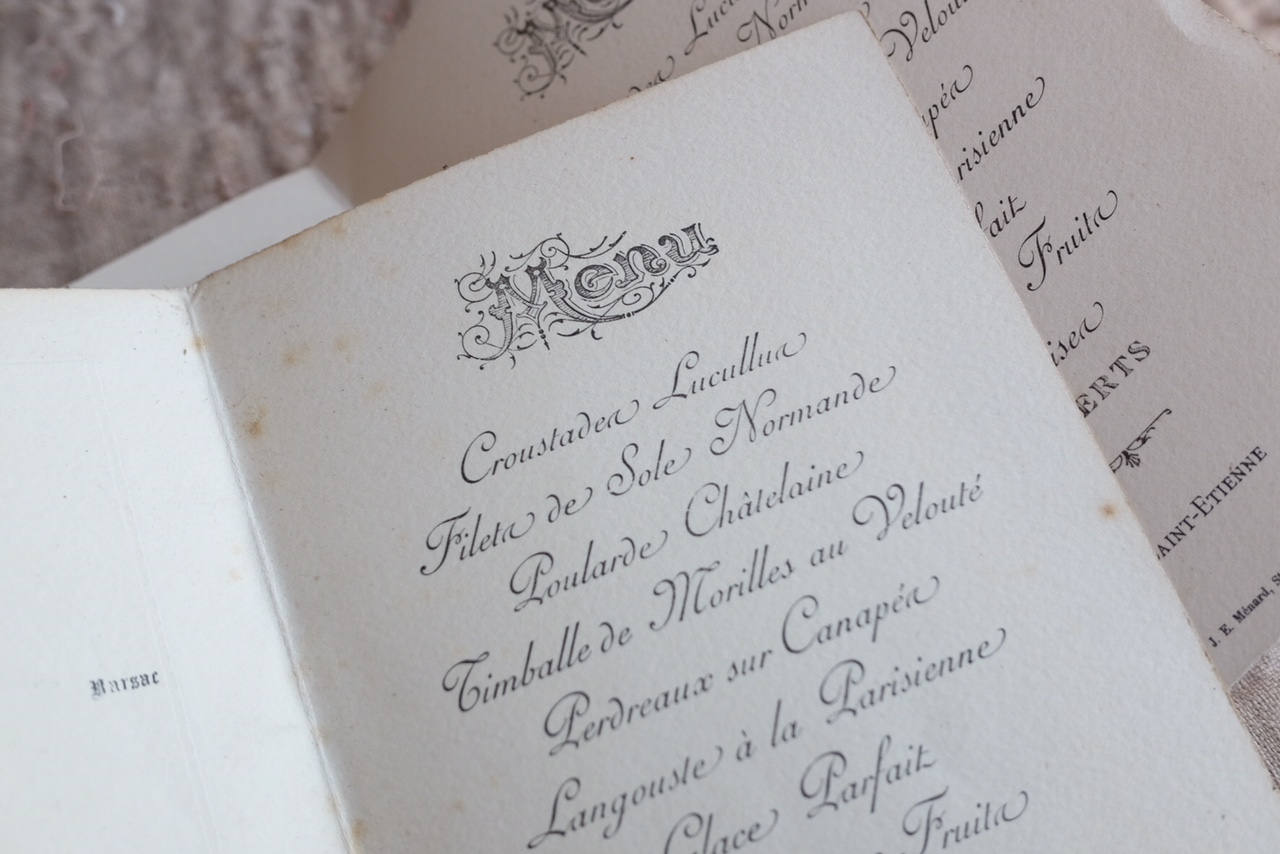 Menu
Croustades Lucullus
Filets de Sole Normande
Poularde Châtelaine
Timballe de Morilles au Velouté
Perdreaux sur Canapés
Langouste à la Parisienne
Glace Parfait
Fruits
Barsac
Lucu
Norm
Velou
apés
risienne
fait
Fruits
ises
ERTS
AINT-ETIENNE
J. E. Ménard, St